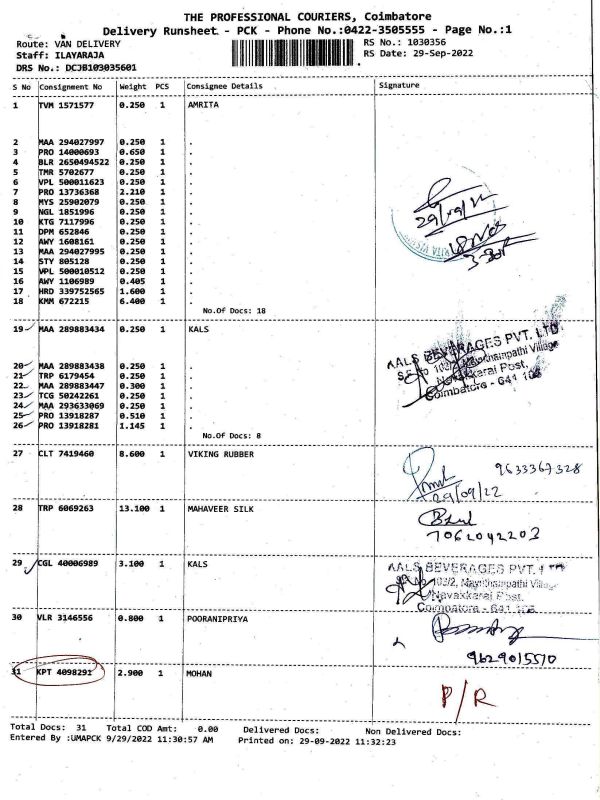 THE PROFESSIONAL COURIERS, Coimbatore
Delivery Runsheet - PCK - Phone No.:0422-3505555 - Page No.:1
Route: VAN DELIVERY RS No.: 1030356
Staff: ILAYARAJA RS Date: 29-Sep-2022
DRS No.: DCJB103035601
S No Consignment No Weight PCS Consignee Details Signature
1 TVM 1571577 0.250 1 AMRITA
2 MAA 294027997 0.250 1 .
3 PRO 14000693 0.650 1 .
4 BLR 2650494522 0.250 1 .
5 TMR 5702677 0.250 1 .
6 VPL 500011623 0.250 1 .
7 PRO 13736368 2.210 1 .
8 MYS 25902079 0.250 1 .
9 NGL 1851996 0.250 1 .
10 KTG 7117996 0.250 1 .
11 DPM 652846 0.250 1 .
12 AWY 1608161 0.250 1 .
13 MAA 294027995 0.250 1 .
14 STY 805128 0.250 1 .
15 VPL 500010512 0.250 1 .
16 AWY 1106989 0.405 1 .
17 HRD 339752565 1.600 1 .
18 KMM 672215 6.400 1 .
No.Of Docs: 18
29/09/22
18 Nos
3-30P
19 MAA 289883434 0.250 1 KALS
20 MAA 289883438 0.250 1 .
21 TRP 6179454 0.250 1 .
22 MAA 289883447 0.300 1 .
23 TCG 50242261 0.250 1 .
24 MAA 293633069 0.250 1 .
25 PRO 13918287 0.510 1 .
26 PRO 13918281 1.145 1 .
No.Of Docs: 8
KALS BEVERAGES PVT. LTD
S.F.No 103/2, Mayilthampathi Village
Navakkarai Post,
Coimbatore - 641 105
27 CLT 7419460 8.600 1 VIKING RUBBER
9633367328
29/09/22
28 TRP 6069263 13.100 1 MAHAVEER SILK
7062042203
29 CGL 40006989 3.100 1 KALS
KALS BEVERAGES PVT. LTD
S.F.No 103/2, Mayilthampathi Village
Navakkarai Post.
Coimbatore - 641 105
30 VLR 3146556 0.800 1 POORANIPRIYA
9629015510
31 KPT 4098291 2.900 1 MOHAN
P/R
Total Docs: 31 Total COD Amt: 0.00 Delivered Docs: Non Delivered Docs:
Entered By :UMAPCK 9/29/2022 11:30:57 AM Printed on: 29-09-2022 11:32:23